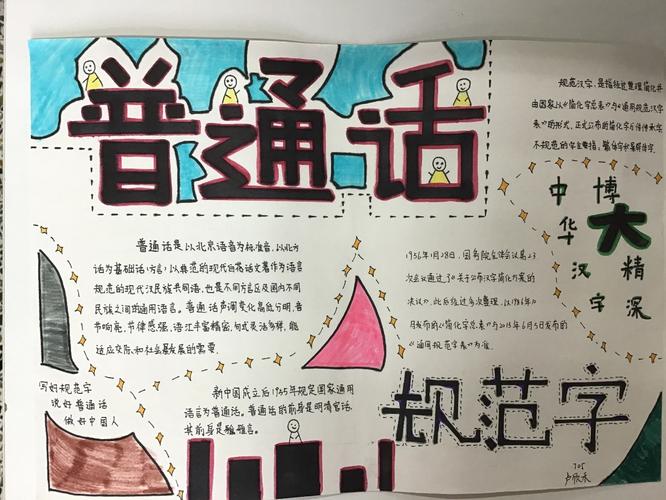 普通话
规范汉字,是指经过整理简化并
由国家以《简化字总表》与《通用规范汉字
表》的形式,正式公布的简化字与传承字
不规范的字主要指,繁体字和异体字.
中华汉字
博大精深
普通话是以北京语音为标准音,以北方
话为基础话(方言),以典范的现代白话文著作为语言
规范的现代汉民族共同语,也是不同方言及国内不同
民族之间的通用语言。普通话声调变化高低分明,音
节响亮,节律感强,语汇丰富精密,句式灵活多样,能
适应交际,和社会发展的需要.
1956年1月28日,国务院全体会议第23
次会议通过了《关于公布汉字简化方案的
决议》,此后经过多次整理,以1986年10
月发布的《简化字总表》与2013年6月5日发布的
《通用规范字表》为准.
写好规范字
说好普通话
做好中国人
新中国成立后1955年规定国家通用
语言为普通话。普通话的前身是明清官话,
其前身是雅言。
规范字
705